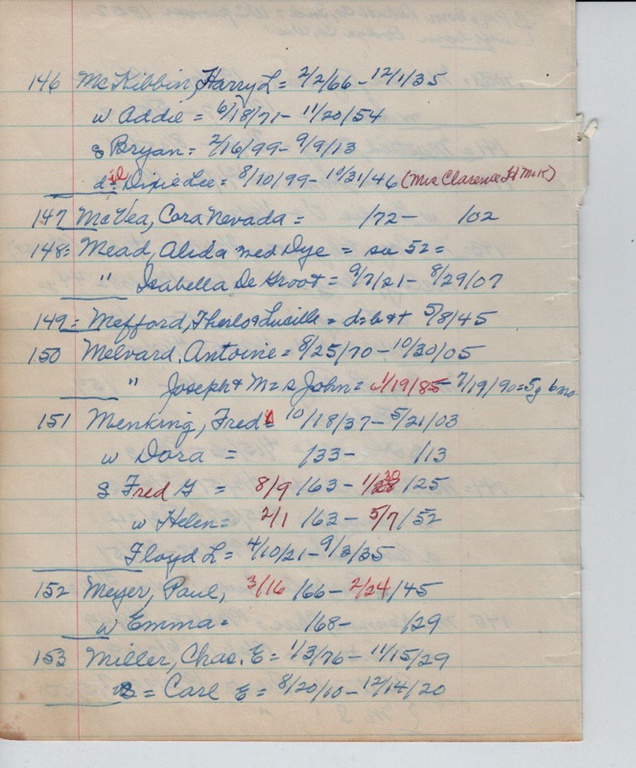 146 McKibbin, Harry L = 2/2/66 - 12/1/35
w Addie = 6/18/71 - 11/20/54
s Bryan = 2/16/99 - 9/9/13
d = Dixie Lee = 8/10/99 - 10/31/46 (Mrs Clarence H McK)
147 McVea, Cora Nevada = /72 - /02
148 = Mead, Alida med Dye = su 52 =
" Isabella De Groot = 9/7/21 - 8/29/07
149 = Mefford, Therlo & Lucille = d = b & t 5/8/45
150 Melvard, Antoine = 8/25/70 - 10/30/05
" Joseph & M = s John = 1/19/85 - 7/19/90 = 5y 6mo
151 Menking, Fred = 10/18/37 - 5/21/03
w Dora = /33 - /13
s Fred G = 8/9/63 - 1/30/25
w Helen = 2/1/62 - 5/7/52
Floyd L = 4/10/21 - 9/3/35
152 Meyer, Paul, 3/16/66 - 2/24/45
w Emma = /68 - /29
153 Miller, Chas. E = 1/3/76 - 11/15/29
s = Carl E = 8/20/10 - 12/14/20